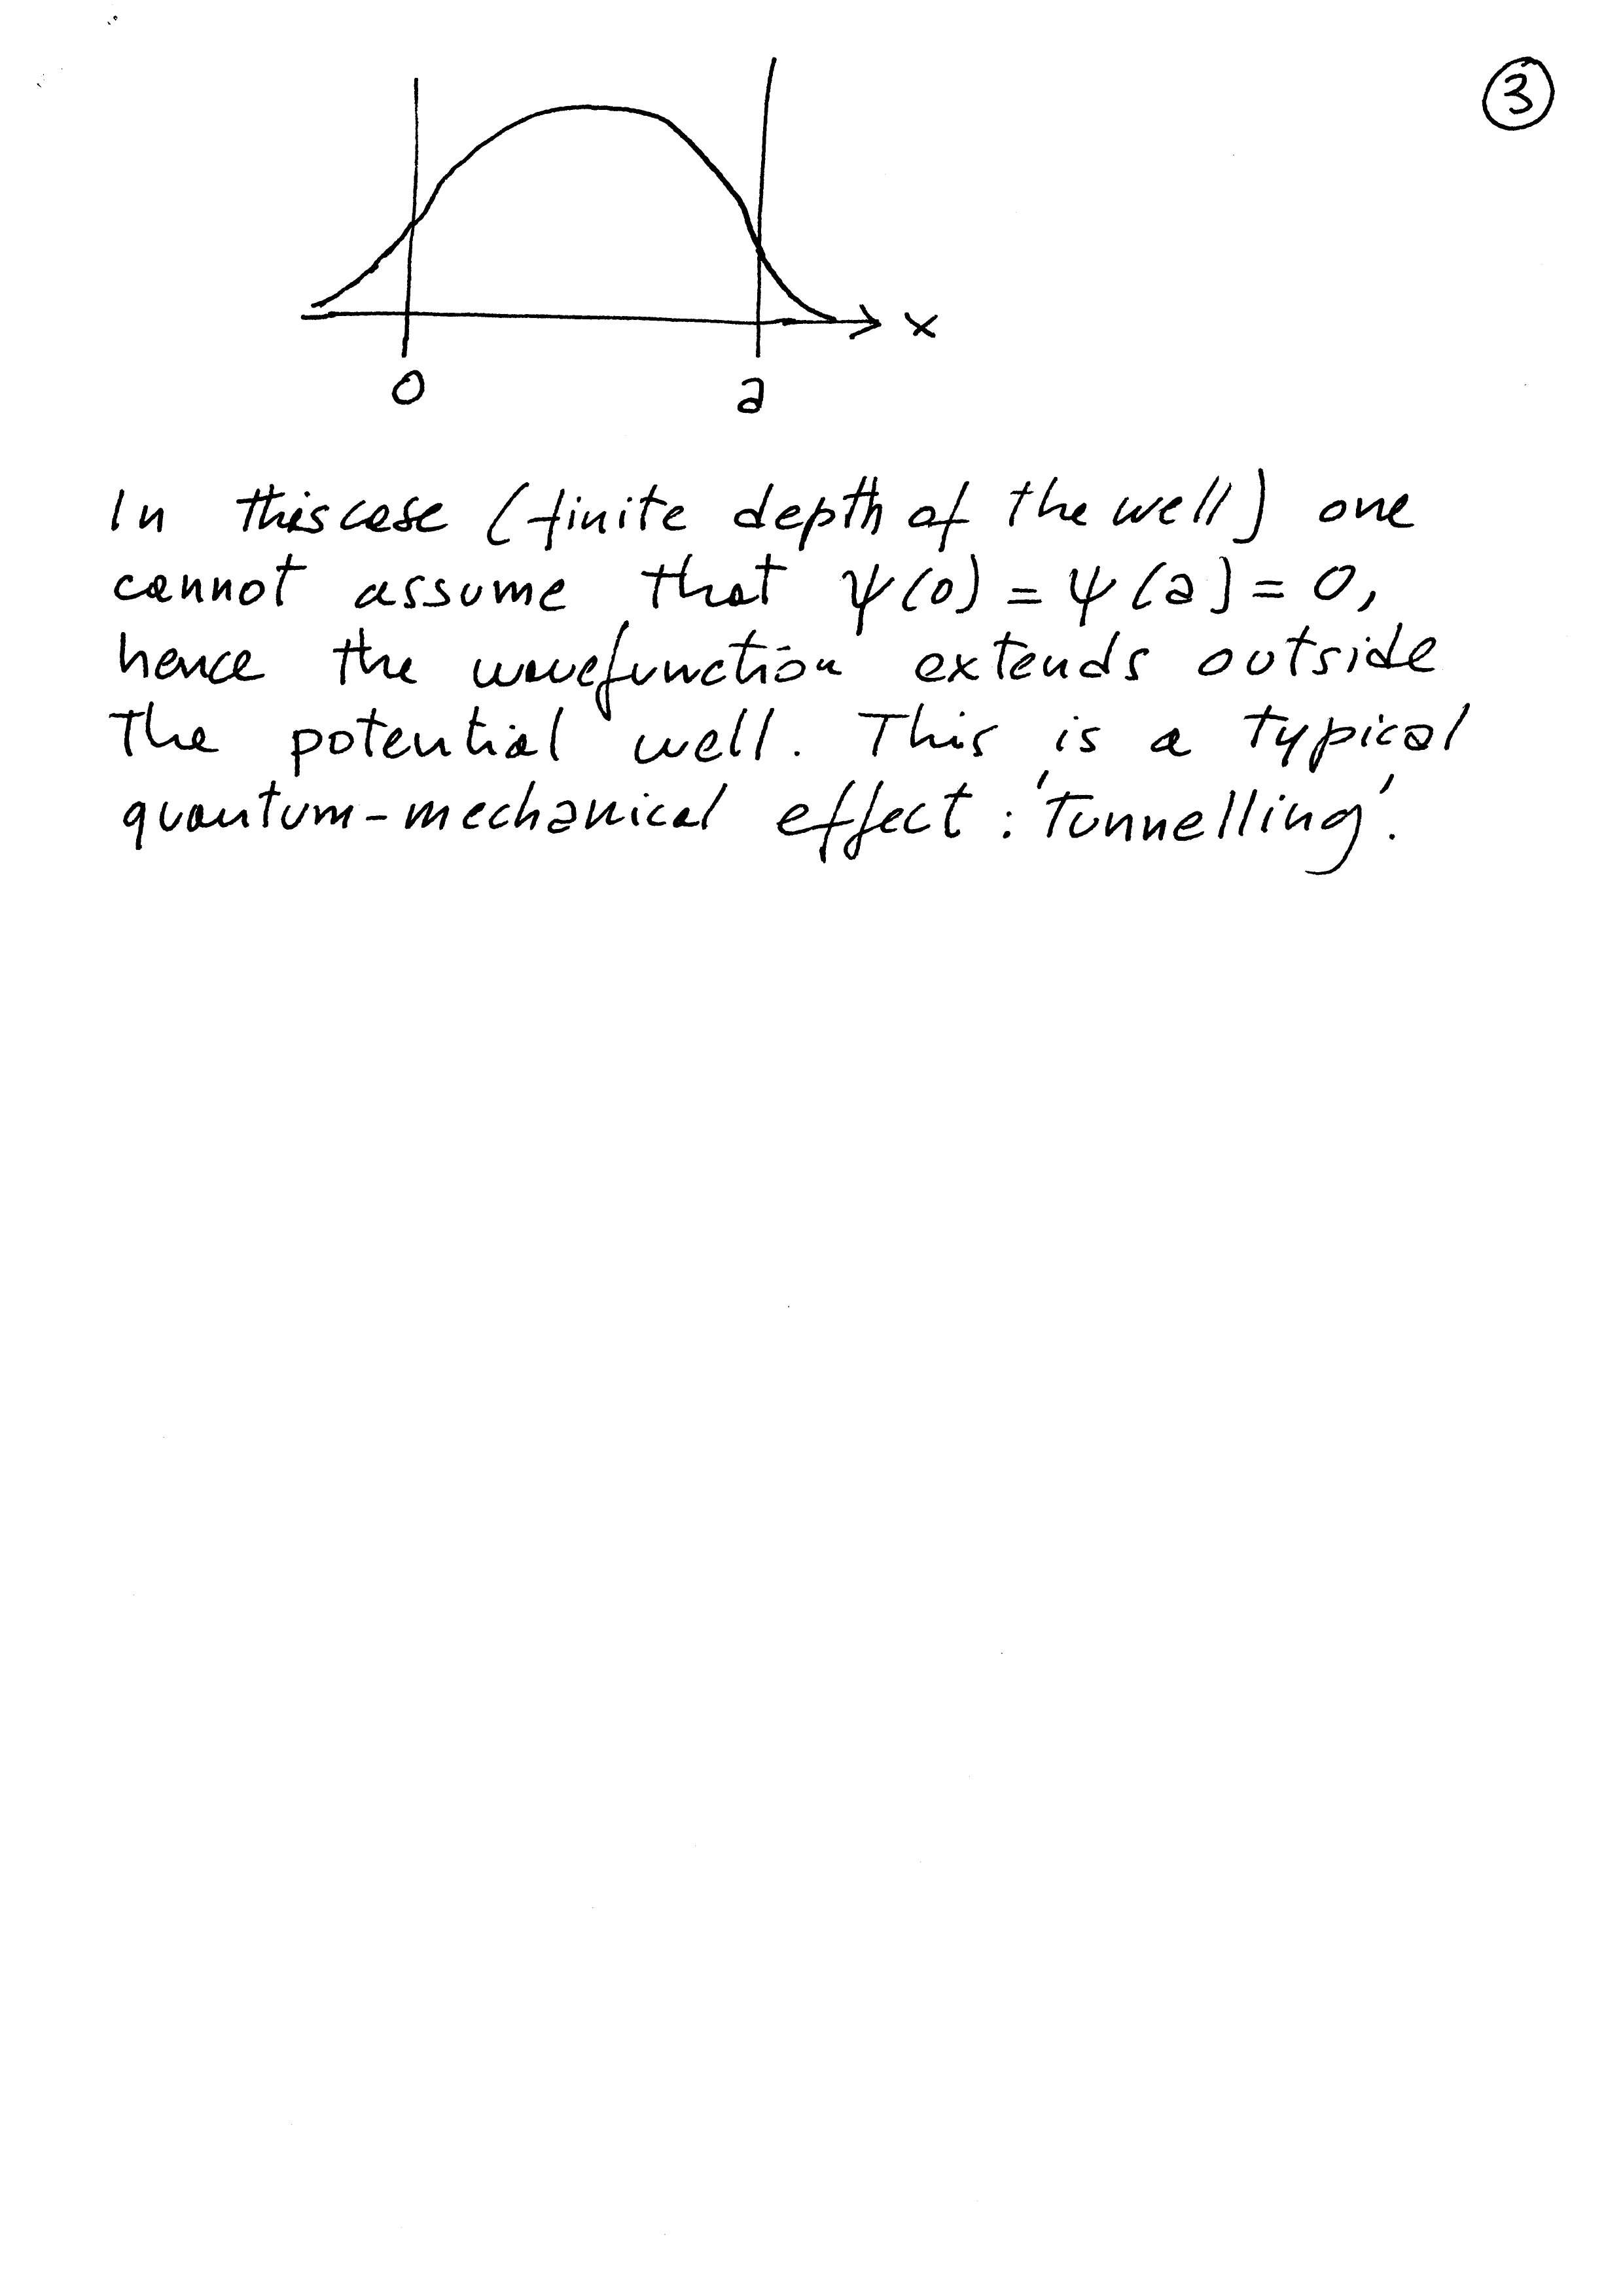 3
x
0
a
In this case (finite depth of the well) one
cannot assume that ψ(0) = ψ(a) = 0,
hence the wavefunction extends outside
The potential well. This is a typical
quantum-mechanical effect : 'Tunnelling'.